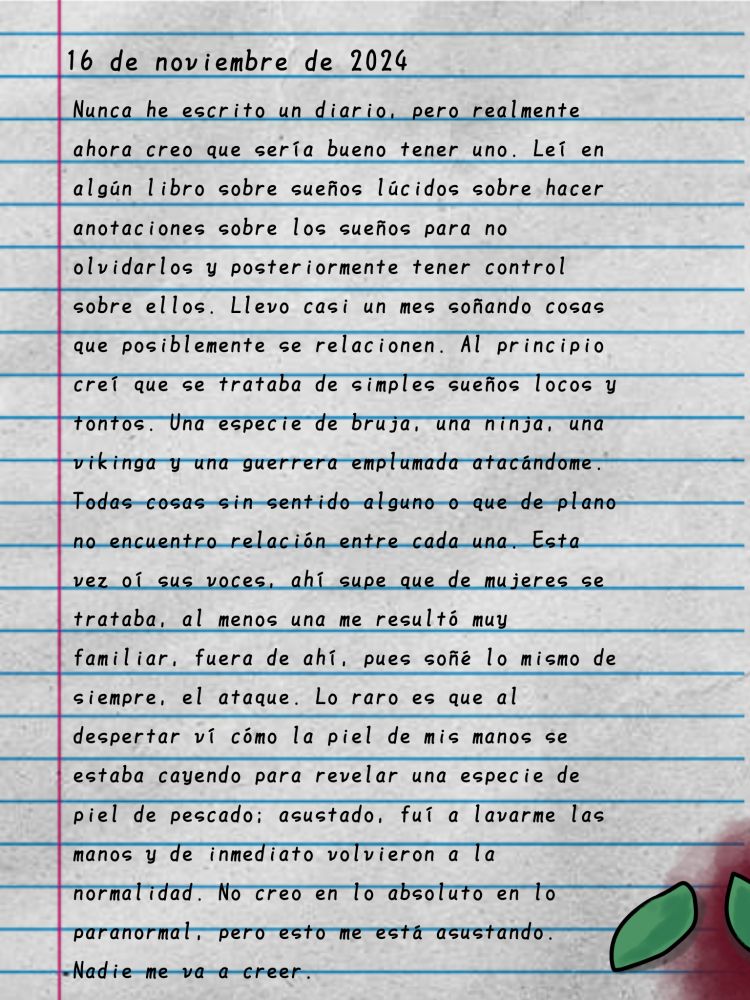 16 de noviembre de 2024
Nunca he escrito un diario, pero realmente
ahora creo que sería bueno tener uno. Leí en
algún libro sobre sueños lúcidos sobre hacer
anotaciones sobre los sueños para no
olvidarlos y posteriormente tener control
sobre ellos. Llevo casi un mes soñando cosas
que posiblemente se relacionen. Al principio
creí que se trataba de simples sueños locos y
tontos. Una especie de bruja, una ninja, una
vikinga y una guerrera emplumada atacándome.
Todas cosas sin sentido alguno o que de plano
no encuentro relación entre cada una. Esta
vez oí sus voces, ahí supe que de mujeres se
trataba, al menos una me resultó muy
familiar, fuera de ahí, pues soñé lo mismo de
siempre, el ataque. Lo raro es que al
despertar ví cómo la piel de mis manos se
estaba cayendo para revelar una especie de
piel de pescado; asustado, fuí a lavarme las
manos y de inmediato volvieron a la
normalidad. No creo en lo absoluto en lo
paranormal, pero esto me está asustando.
Nadie me va a creer.